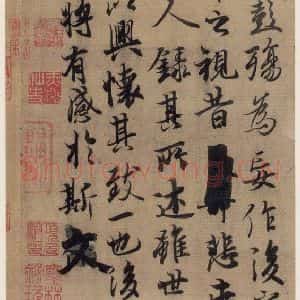 彭殤為妄作後
之視昔悲夫
人錄其所述雖世
以興懷其致一也後
將有感於斯文